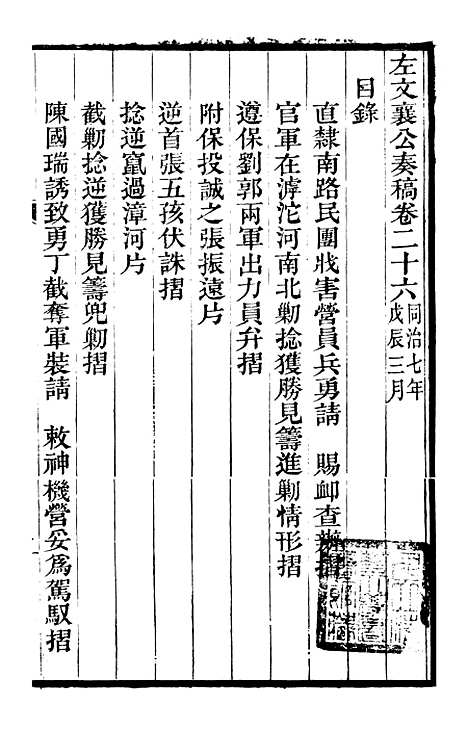 左文襄公奏稿卷二十六同治七年戊辰三月
目錄
直隸南路民團戕害營員兵勇請 賜卹查辦摺
官軍在滹沱河南北勦捻獲勝見籌進勦情形摺
遵保劉郭兩軍出力員弁摺
附保投誠之張振遠片
逆首張五孩伏誅摺
捻逆竄過漳河片
截勦捻逆獲勝見籌兜勦摺
陳國瑞誘致勇丁截奪軍裝請 敕神機營妥爲駕馭摺